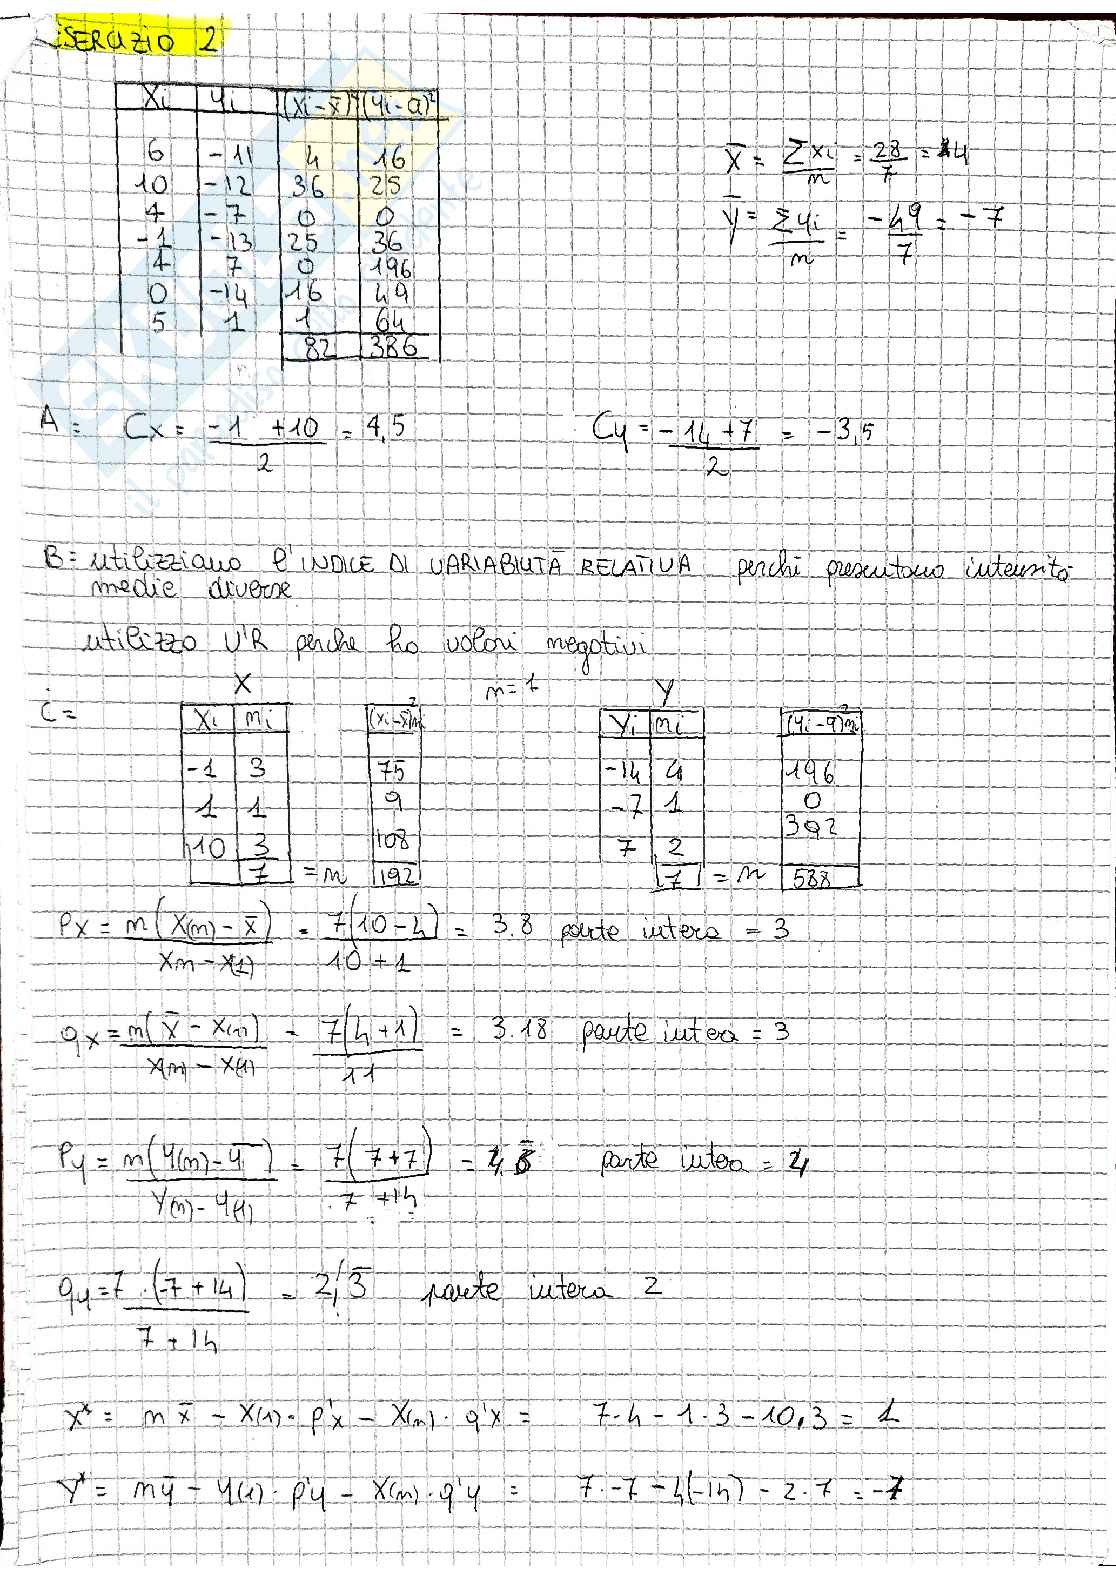 ESERCIZIO 2
xi yi (xi-x̄)² (yi-ȳ)²
6 -11 4 16
10 -12 36 25
4 -7 0 0
-1 -13 25 36
4 7 0 196
0 -14 16 49
5 1 1 64
82 386
x̄ = Σxi/n = 28/7 = 4
ȳ = Σyi/n = -49/7 = -7
A = Cx = (-1 +10)/2 = 4,5
Cy = (-14+7)/2 = -3,5
B = utilizziamo l'INDICE DI VARIABILITÀ RELATIVA perchè presentano intensità
medie diverse
utilizzo V'R perche ho valori negativi
X n=7 Y
C =
xi ni (xi-x̄)²ni
-1 3 75
1 1 9
10 3 108
7 = n 192
yi ni (yi-ȳ)²ni
-14 4 196
-7 1 0
7 2 392
7 = n 588
Px = n(x(n) - x̄)/(xn - x(1)) = 7(10-4)/(10+1) = 3.8 parte intera = 3
qx = n(x̄ - x(n))/(x(n) - x(1)) = 7(4+1)/11 = 3.18 parte intera = 3
Py = n(y(n) - ȳ)/(y(n) - y(1)) = 7(7+7)/(7+14) = parte intera = 4
qy = 7·(-7+14)/(7+14) = 2,3̄ parte intera 2
x* = n x̄ - x(1)· p'x - x(n)· q'x = 7·4 - 1·3 - 10·3 = 1
y* = nȳ - y(1)· p'y - x(n)·q'y = 7·-7 - 4(-14) - 2·7 = -7